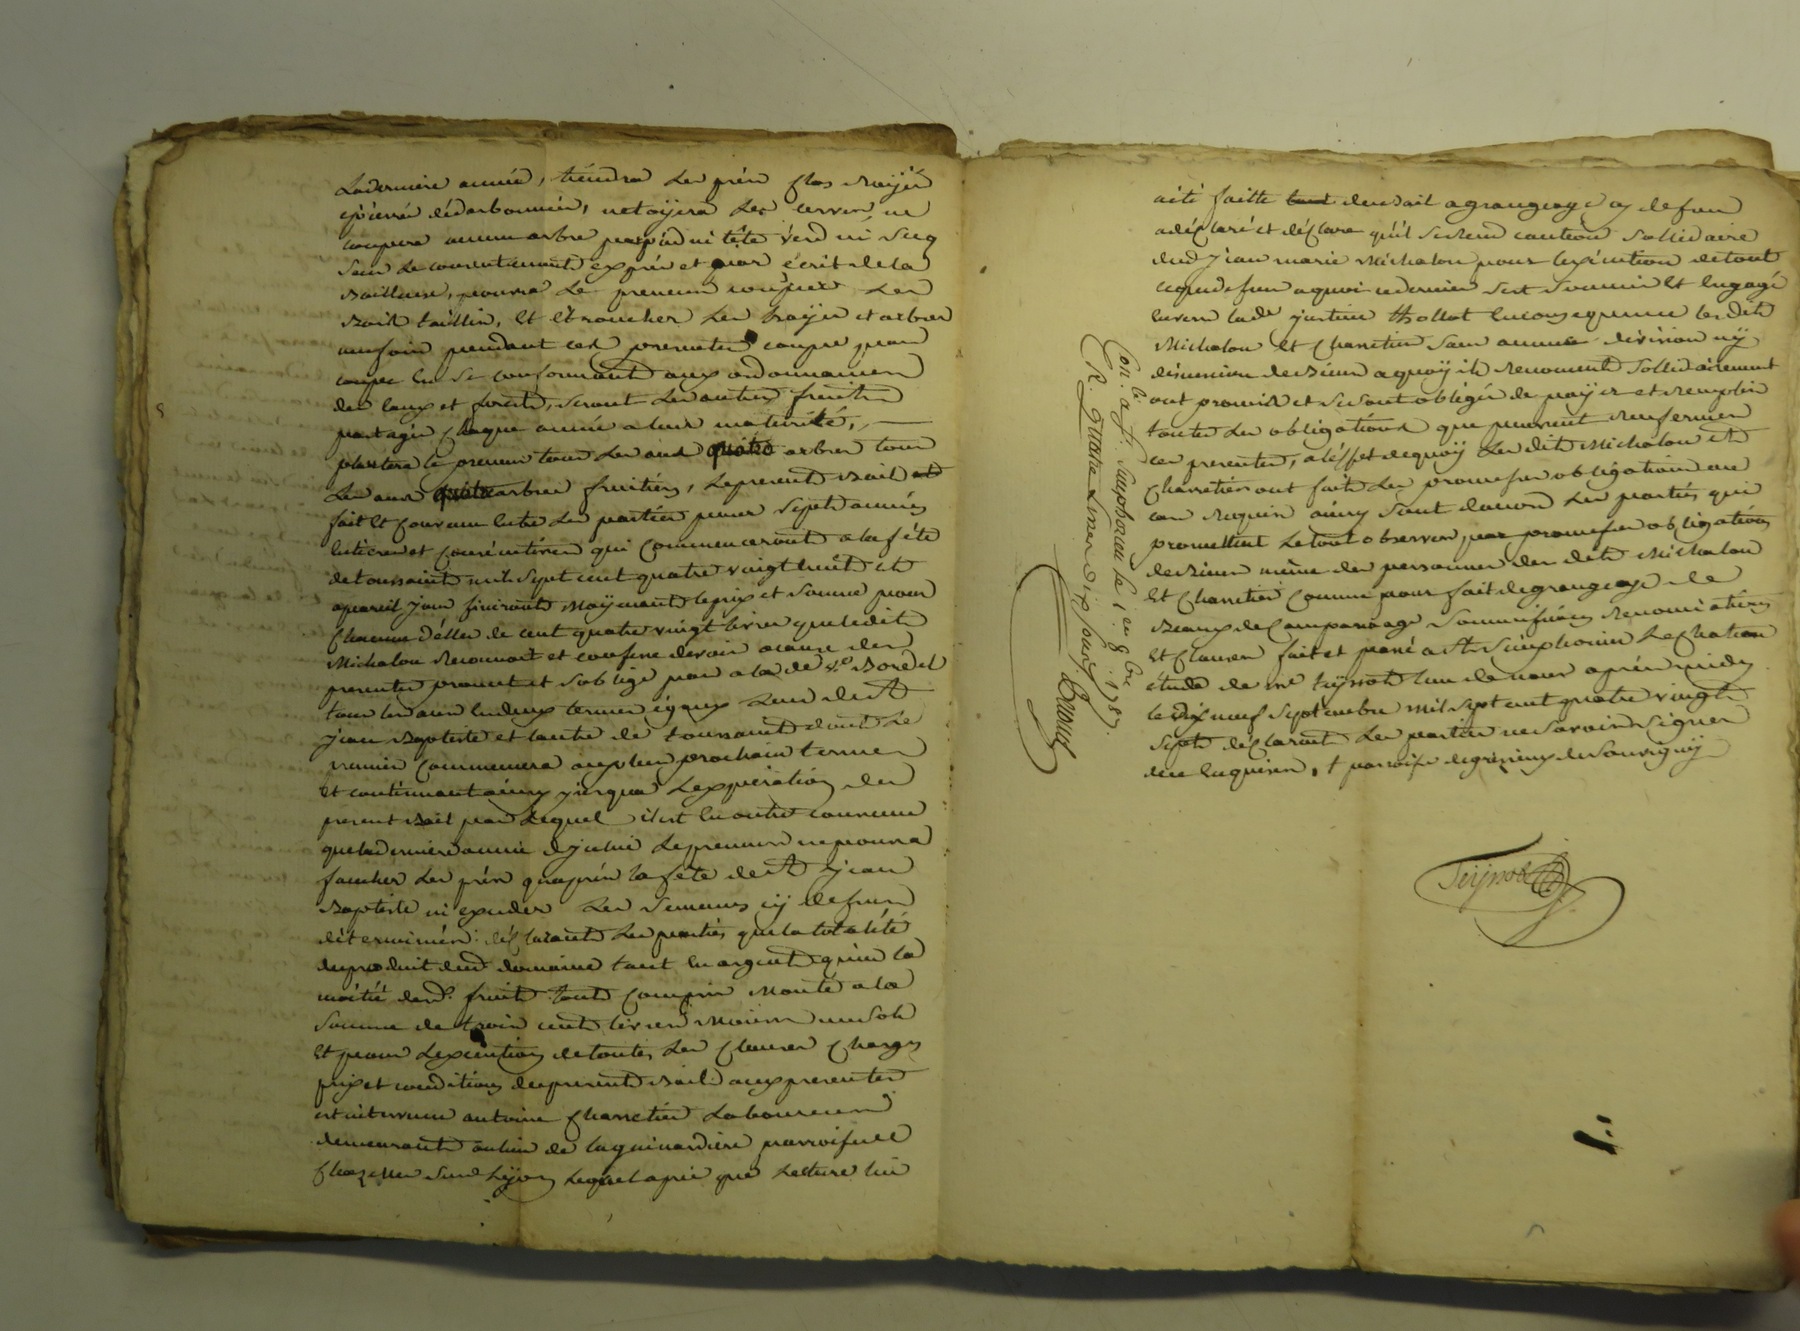 la derniere année, tiendra les prés clos rayés
épierré dédarbounnés, netoyera les serves, ne
coupera aucun arbre par pied ni tête verd ni seq
sans le consentement exprés et par écrit de la
Bailleuse, pourra le preneur couper les
Bois taillis, et ébrancher les hayes et arbres
une fois pendant ces presentes coupe pour
coupe en se conformant aux ordonnances
des eaux et forests, seront les autres fruits
partagés chaque année a leur maturité,
plantera le preneur tous les ans quatre arbres tous
les ans arbres fruitiers, le present Bail est
fait et convenu entre les parties pour sept années
entieres et consécutives qui commenceront a la fête
de toussaint mil sept cent quatre vingt huit et
a pareil jour finiront moyenant le prix et somme pour
chacune d'elles de cent quatre vingt livres que ledit
Michalon reconnoit et confesse devoir a cause des
presentes promet et s'oblige payer a lade de Borel
tous les ans en deux termes égaux l'un de St
jean Baptiste et l'autre de toussaint dont le
premier commencera auxdits prochain termes
et continuant ainsy jusqua l'expiration du
present Bail par lequel il est en outre convenu
que la derniere année d'jcelui le preneur ne pourra
faucher les prés qu'aprés la fête de St jean
Baptiste ni exceder les semances cy dessus
déterminés: déclarant les parties que la totalité
du produit dud. domaine tant en argent qu'en la
moitié desd. fruits tout compris monte a la
somme de trois cent livres moins un sol
et pour l'execution de toutes les clauses charges
prix et conditions du present Bail aux presentes
est intervenu antoine Charretier laboureur
demeurant au lieu de la guinardiere parroisse de
Chazelles sur Lyon lequel aprés que lecture lui
a été faitte du Bail a grangeage cy dessus
a déclaré et déclare qu'il se rend caution sollidaire
dud jean marie Michalon pour l'exécution de tout
ce que dessus a quoi ce dernier s'est soumis et engagé
envers lade justine thollot en consequence lesdits
Michalon et Charretier sans aucune division ny
discussion de Biens a quoy ils renoncent sollidairement
ont promis et se sont obligés de payer et remplir
toutes les obligations que peuvent renfermer
ces presentes, a l'effet de quoy lesdits Michalon et
Charretier ont fait les promesses obligations en
cas requis ainsy sont d'accord les parties qui
promettent le tout observer, par promesses obligations
de Biens même des personnes desdits Michalon
et Charretier comme pour fait de grangeage de
Beaux de campannage soumissions renonciations
et clauses fait et passé a St simphorien le Chateau
étude de me teyssot l'un de nous aprés midy
le dix neuf septembre mil sept cent quatre vingt
sept déclarant les parties ne savoir signer
de ce enquises, † parroisse de grezieux de souvigny
Teyssot
Con. à St. Simphorien le 1er 8bre 1787.
R. quatre Livres dix sous